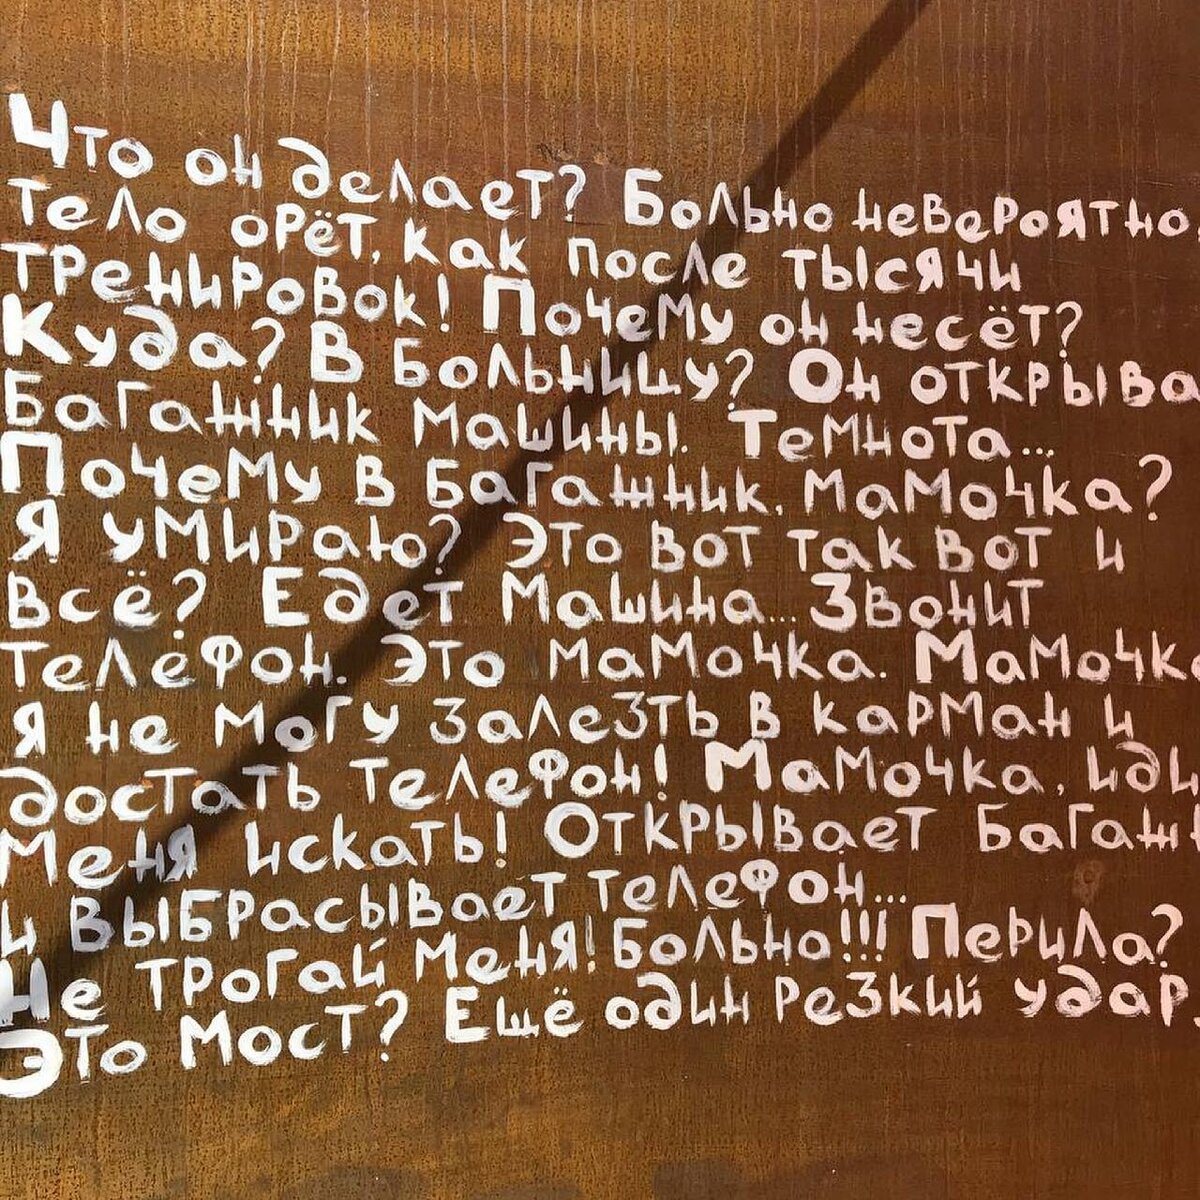 Что он делает? Больно невероятно,
тело орёт, как после тысячи
тренировок! Почему он несёт?
Куда? В больницу? Он открыва
багажник машины. Темнота...
Почему в багажник, мамочка?
Я умираю? Это вот так вот и
всё? Едет машина... Звонит
телефон. Это мамочка. Мамочка
я не могу залезть в карман и
достать телефон! Мамочка, иди
меня искать! Открывает багажн
и выбрасывает телефон...
Не трогай меня! Больно!!! Перила?
Это мост? Ещё один резкий удар.